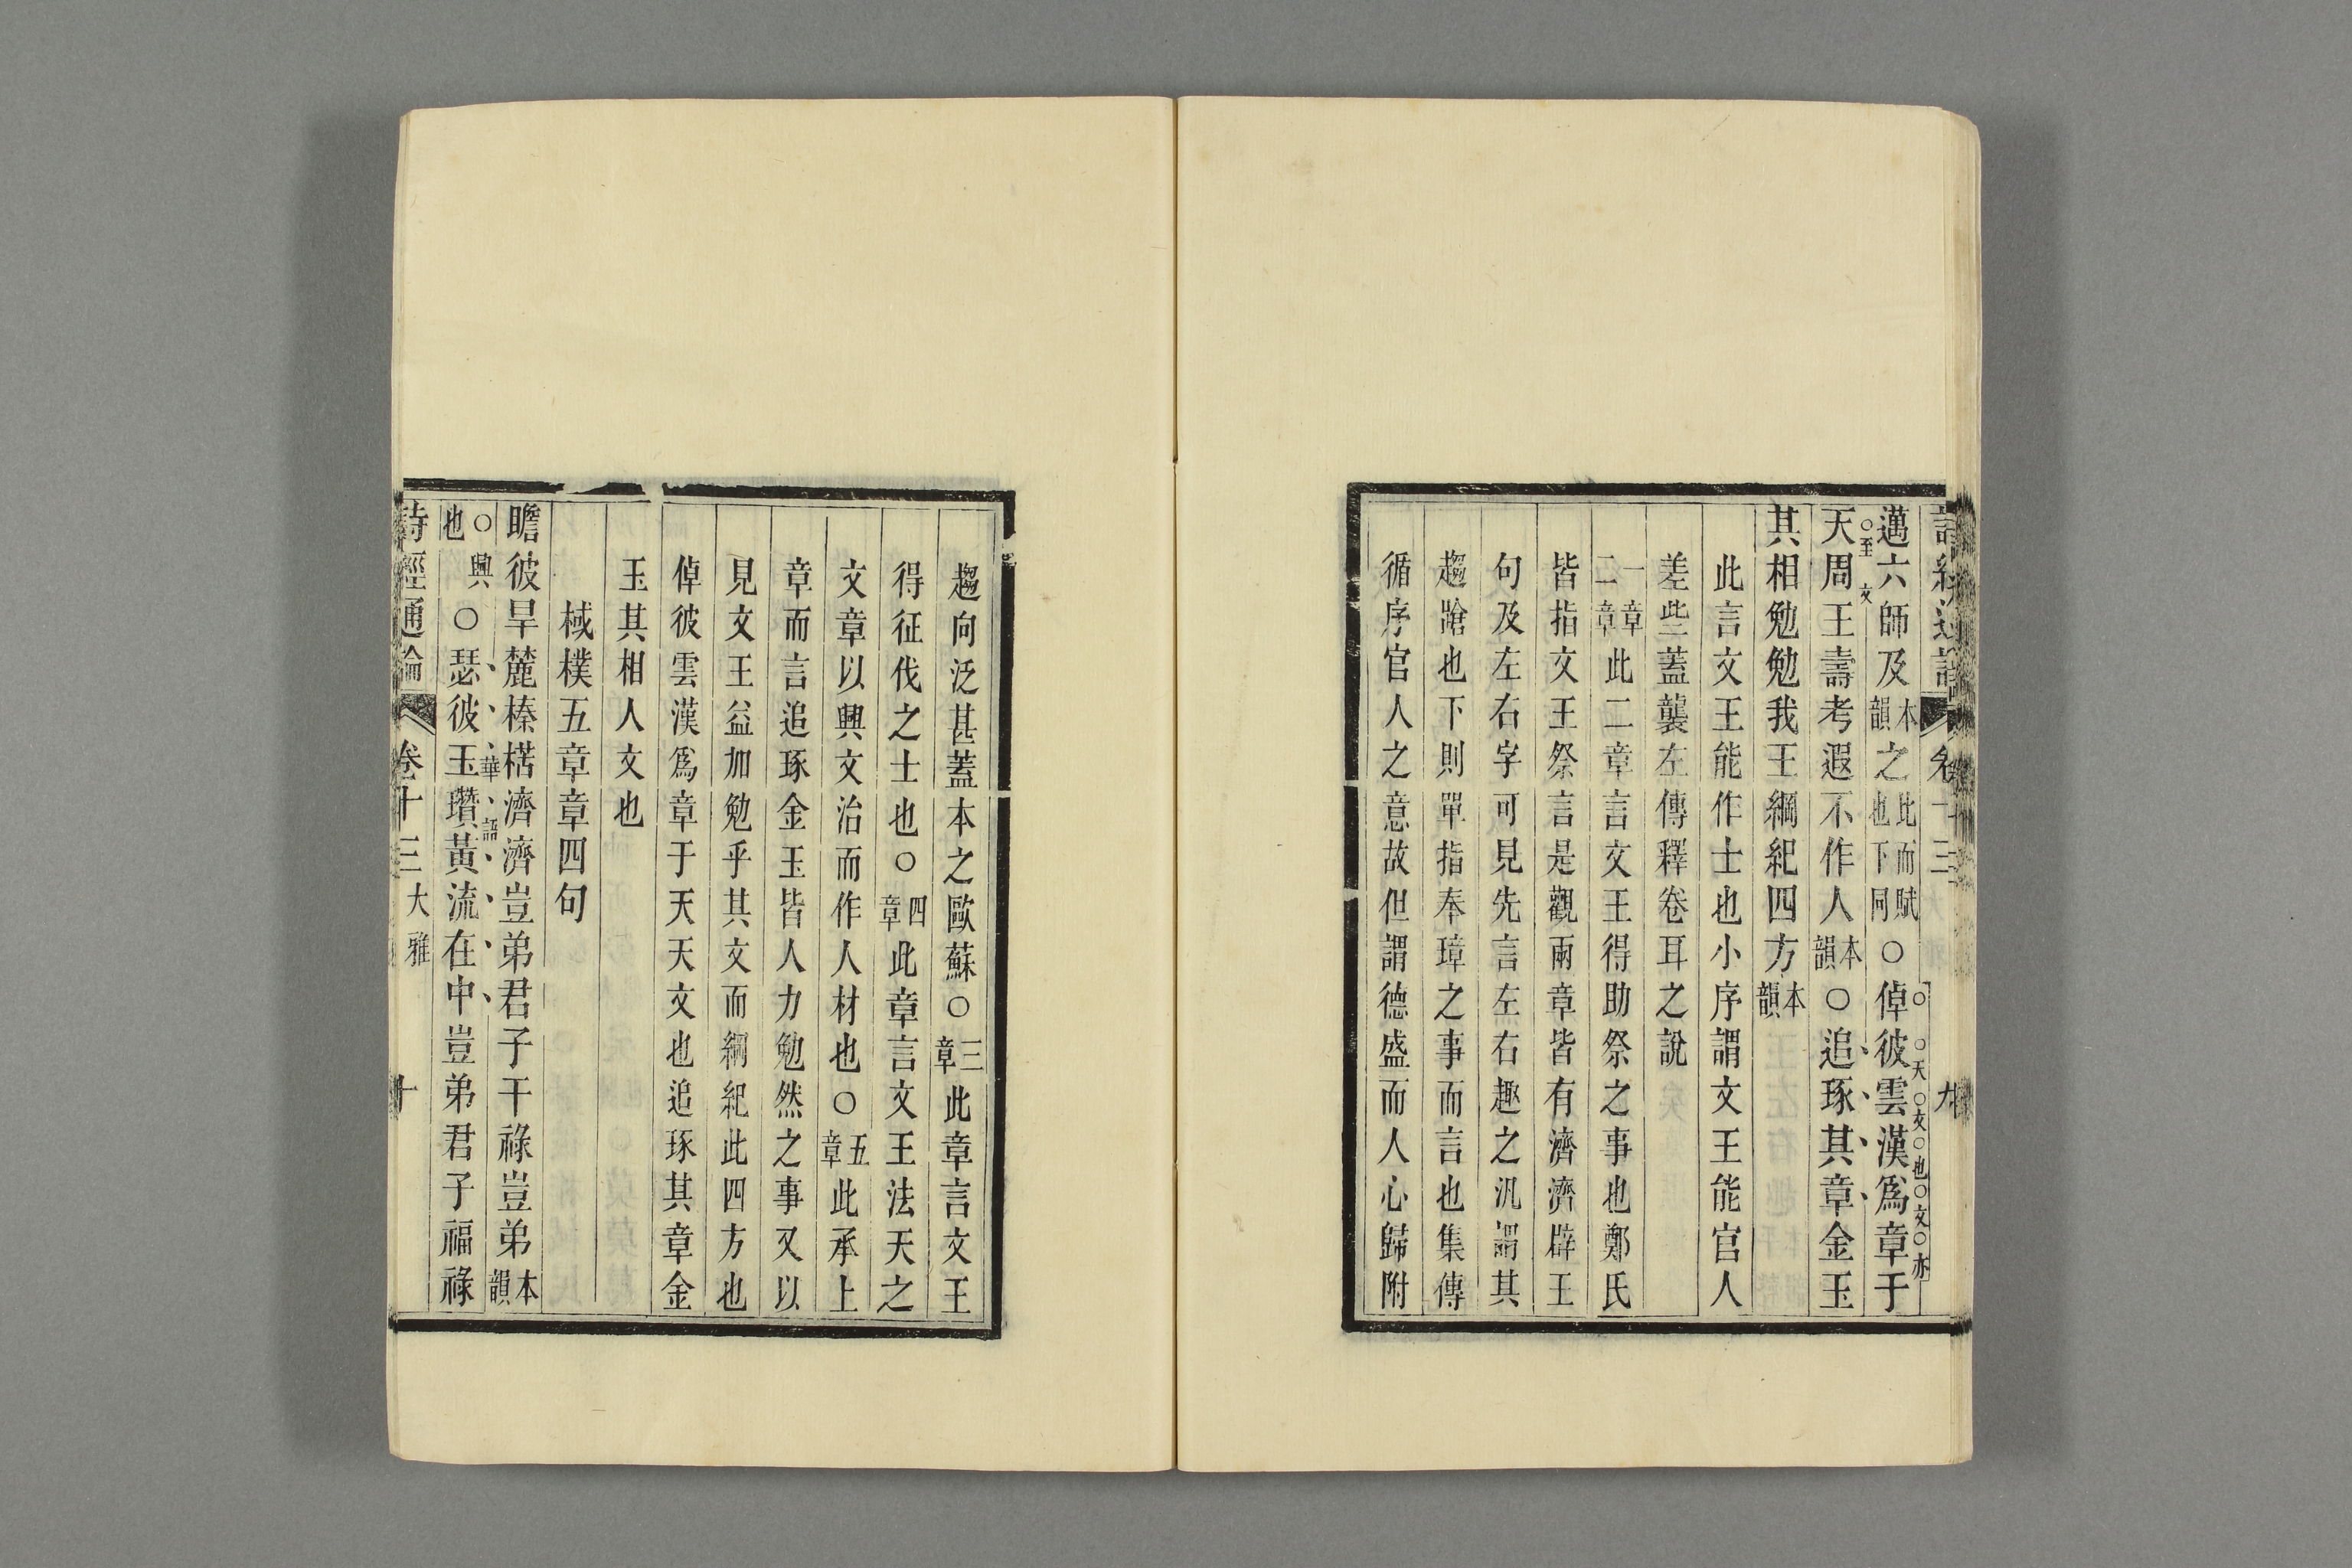 詩經通論 卷十三 九
邁六師及本韻之比而賦也下同○倬彼雲漢爲章于
天文也文亦
天周王壽考遐不作人本韻○追琢其章金玉
至文
其相勉勉我王綱紀四方本韻
此言文王能作士也小序謂文王能官人
差些蓋襲左傳釋卷耳之說
一章二章此二章言文王得助祭之事也鄭氏
皆指文王祭言是觀兩章皆有濟濟辟王
句及左右字可見先言左右趣之汎謂其
趨蹌也下則單指奉璋之事而言也集傳
循序官人之意故但謂德盛而人心歸附
趨向泛甚蓋本之歐蘇○三章此章言文王
得征伐之士也○四章此章言文王法天之
文章以興文治而作人材也○五章此承上
章而言追琢金玉皆人力勉然之事又以
見文王益加勉乎其文而綱紀此四方也
倬彼雲漢爲章于天天文也追琢其章金
玉其相人文也
棫樸五章章四句
瞻彼旱麓榛楛濟濟豈弟君子干祿豈弟本韻
華語
○興也○瑟彼玉瓚黃流在中豈弟君子福祿
詩經通論 卷十三 大雅 十